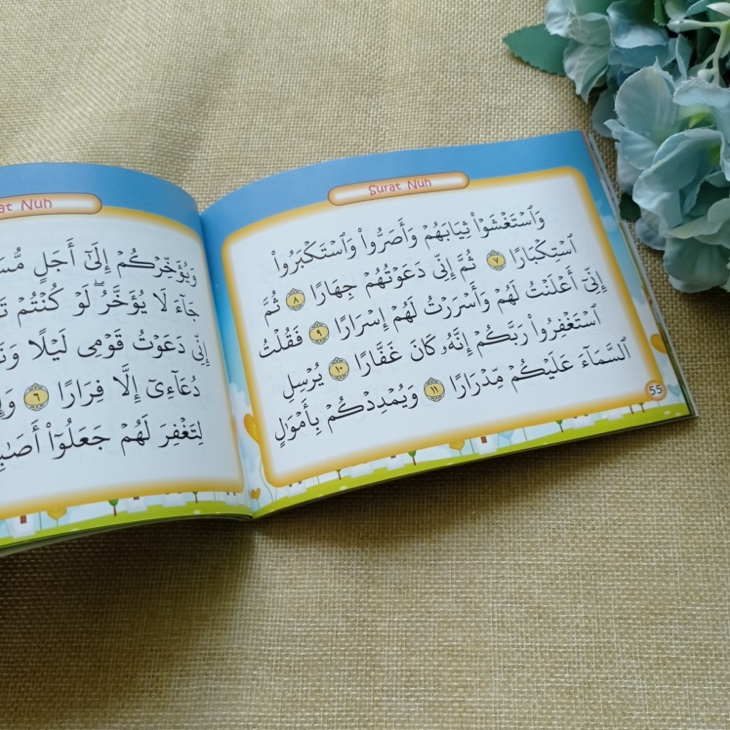 at Nuh
وَيُؤَخِّرْكُمْ إِلَىٰٓ أَجَلٍ مُّسَ
جَآءَ لَا يُؤَخَّرُ ۖ لَوْ كُنْتُمْ تَ
إِنِّى دَعَوْتُ قَوْمِى لَيْلًا وَنَ
دُعَآءِىٓ إِلَّا فِرَارًا ٦ وَإِ
لِتَغْفِرَ لَهُمْ جَعَلُوٓا۟ أَصَٰ
Surat Nuh
وَٱسْتَغْشَوْا۟ ثِيَابَهُمْ وَأَصَرُّوا۟ وَٱسْتَكْبَرُوا۟
ٱسْتِكْبَارًا ٧ ثُمَّ إِنِّى دَعَوْتُهُمْ جِهَارًا ٨ ثُمَّ
إِنِّىٓ أَعْلَنْتُ لَهُمْ وَأَسْرَرْتُ لَهُمْ إِسْرَارًا ٩ فَقُلْتُ
ٱسْتَغْفِرُوا۟ رَبَّكُمْ إِنَّهُۥ كَانَ غَفَّارًا ١٠ يُرْسِلِ
ٱلسَّمَآءَ عَلَيْكُمْ مِّدْرَارًا ١١ وَيُمْدِدْكُمْ بِأَمْوَٰلٍ
55